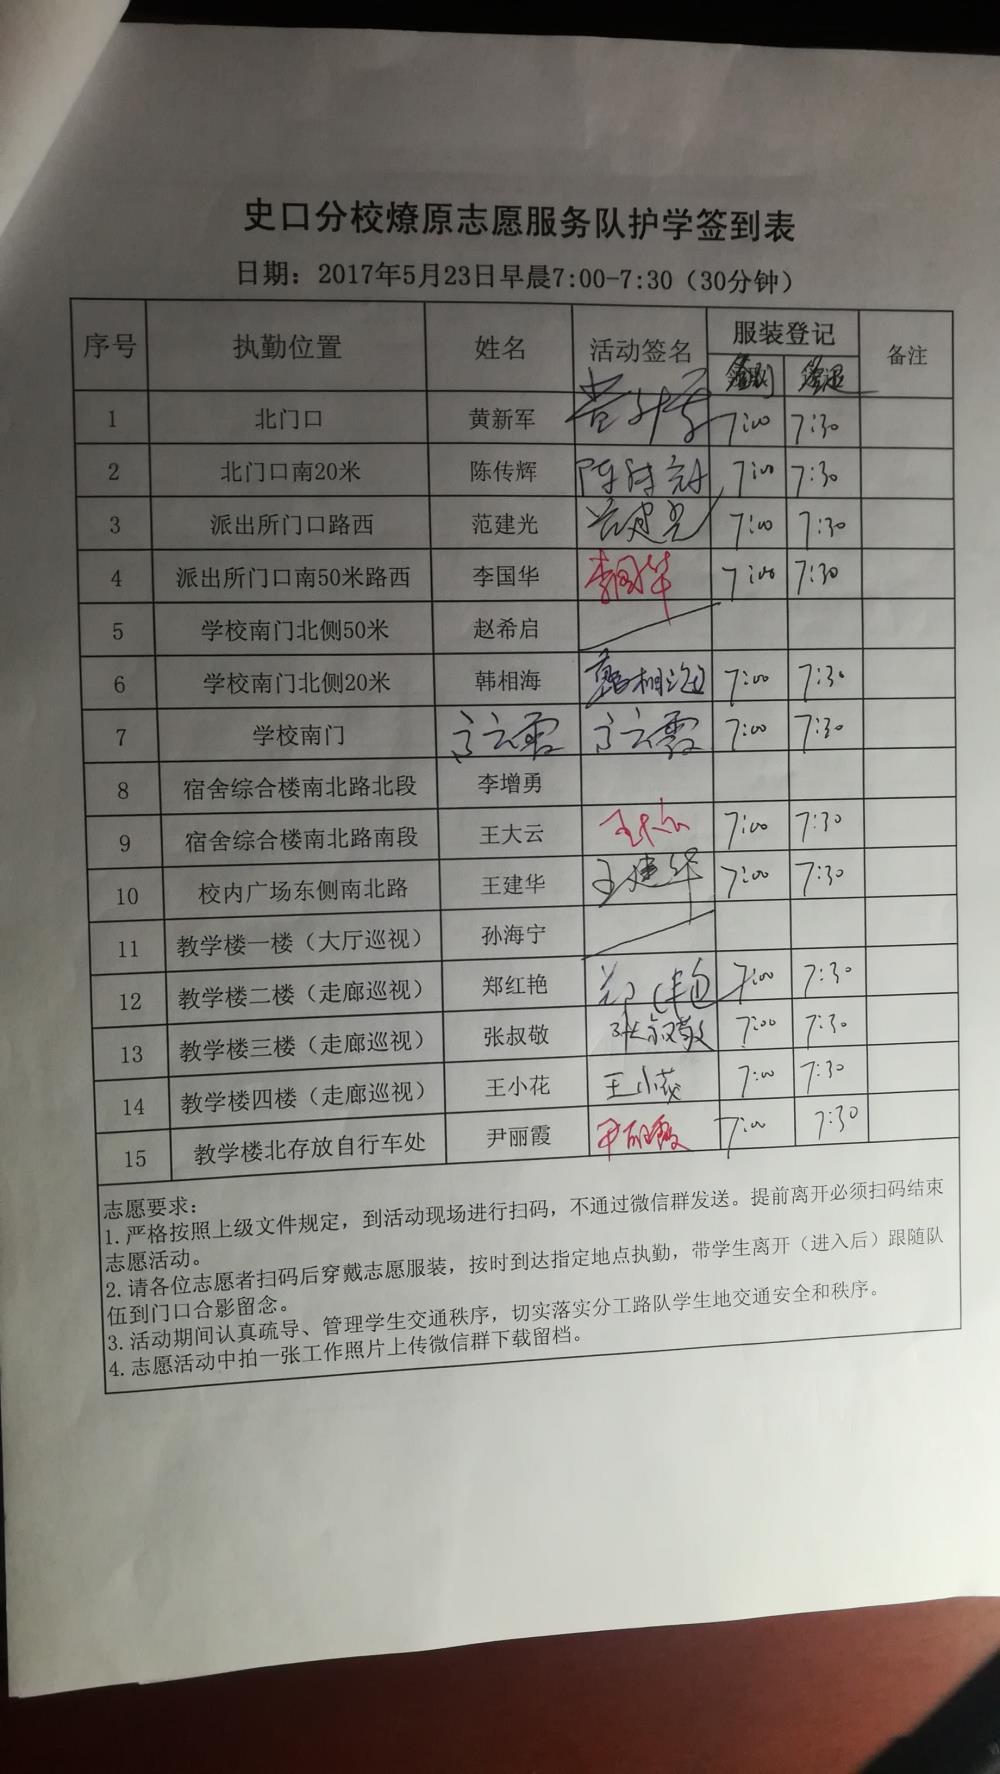 史口分校燎原志愿服务队护学签到表
日期：2017年5月23日早晨7:00-7:30（30分钟）
序号 执勤位置 姓名 活动签名 服装登记 备注
签到 签退
1 北门口 黄新军 7:00 7:30
2 北门口南20米 陈传辉 7:00 7:30
3 派出所门口路西 范建光 范建光 7:00 7:30
4 派出所门口南50米路西 李国华 李国华 7:00 7:30
5 学校南门北侧50米 赵希启
6 学校南门北侧20米 韩相海 韩相海 7:00 7:30
7 学校南门 7:00 7:30
8 宿舍综合楼南北路北段 李增勇
9 宿舍综合楼南北路南段 王大云 王大云 7:00 7:30
10 校内广场东侧南北路 王建华 王建华 7:00 7:30
11 教学楼一楼（大厅巡视） 孙海宁
12 教学楼二楼（走廊巡视） 郑红艳 郑红艳 7:00 7:30
13 教学楼三楼（走廊巡视） 张叔敬 张叔敬 7:00 7:30
14 教学楼四楼（走廊巡视） 王小花 王小花 7:00 7:30
15 教学楼北存放自行车处 尹丽霞 尹丽霞 7:00 7:30
志愿要求：
1.严格按照上级文件规定，到活动现场进行扫码，不通过微信群发送。提前离开必须扫码结束
志愿活动。
2.请各位志愿者扫码后穿戴志愿服装，按时到达指定地点执勤，带学生离开（进入后）跟随队
伍到门口合影留念。
3.活动期间认真疏导、管理学生交通秩序，切实落实分工路队学生地交通安全和秩序。
4.志愿活动中拍一张工作照片上传微信群下载留档。